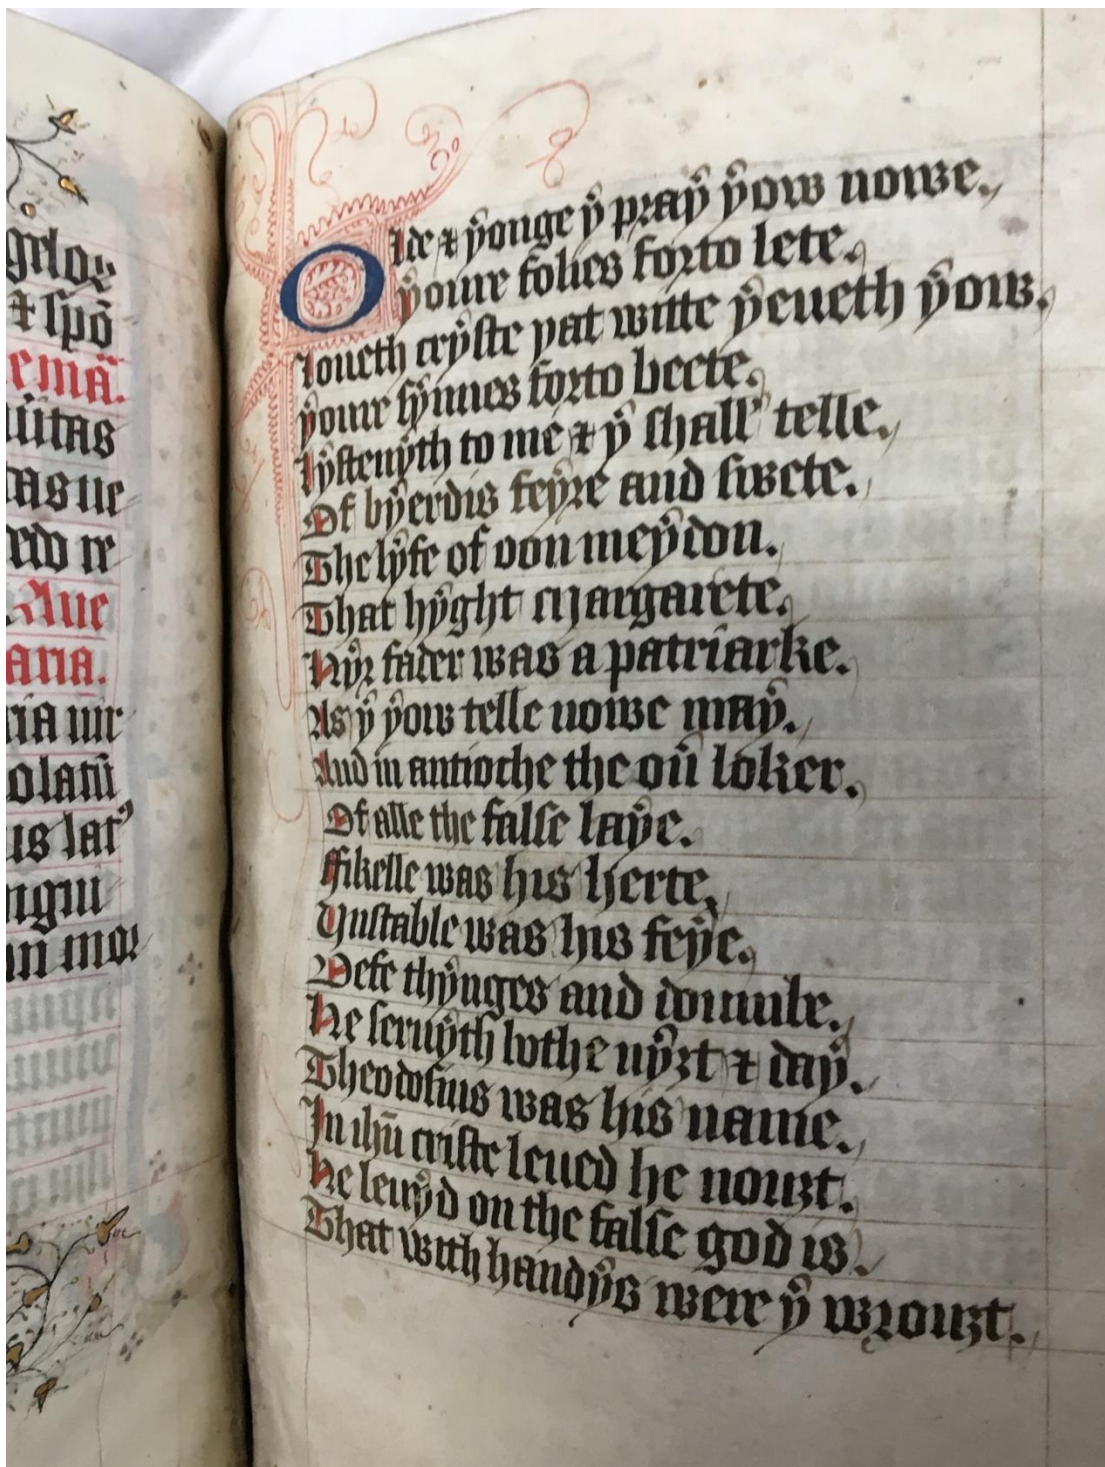 gelor
⁊ spō
emā.
uitas
as ue
edo re
Aue
aria.
ria uir
olatū
is lar
ngui
in mor
Olde ⁊ ẏonge ẏ praẏ ẏow nowe.
ẏoure folies forto lete.
loueth crẏste yat witte ẏeueth ẏow.
ẏoure sẏnnes forto beete.
lẏstenẏth to me ⁊ ẏ shall telle.
Of bẏerdis feẏre and swete.
The lẏfe of oon meẏdon.
That hẏght Margarete.
Hẏr fader was a patriarke.
As ẏ ẏow telle nowe maẏ.
And in antioche the oū loker.
Of alle the false laẏe.
Ffikelle was his herte.
Unstable was his feẏe.
Defe thẏnges and doumbe.
He seruẏth bothe nẏȝt ⁊ daẏ.
Theodosius was his name.
In ihū criste leued he nouȝt.
He leuẏd on the false god is.
That with handẏs were ẏ wrouȝt.